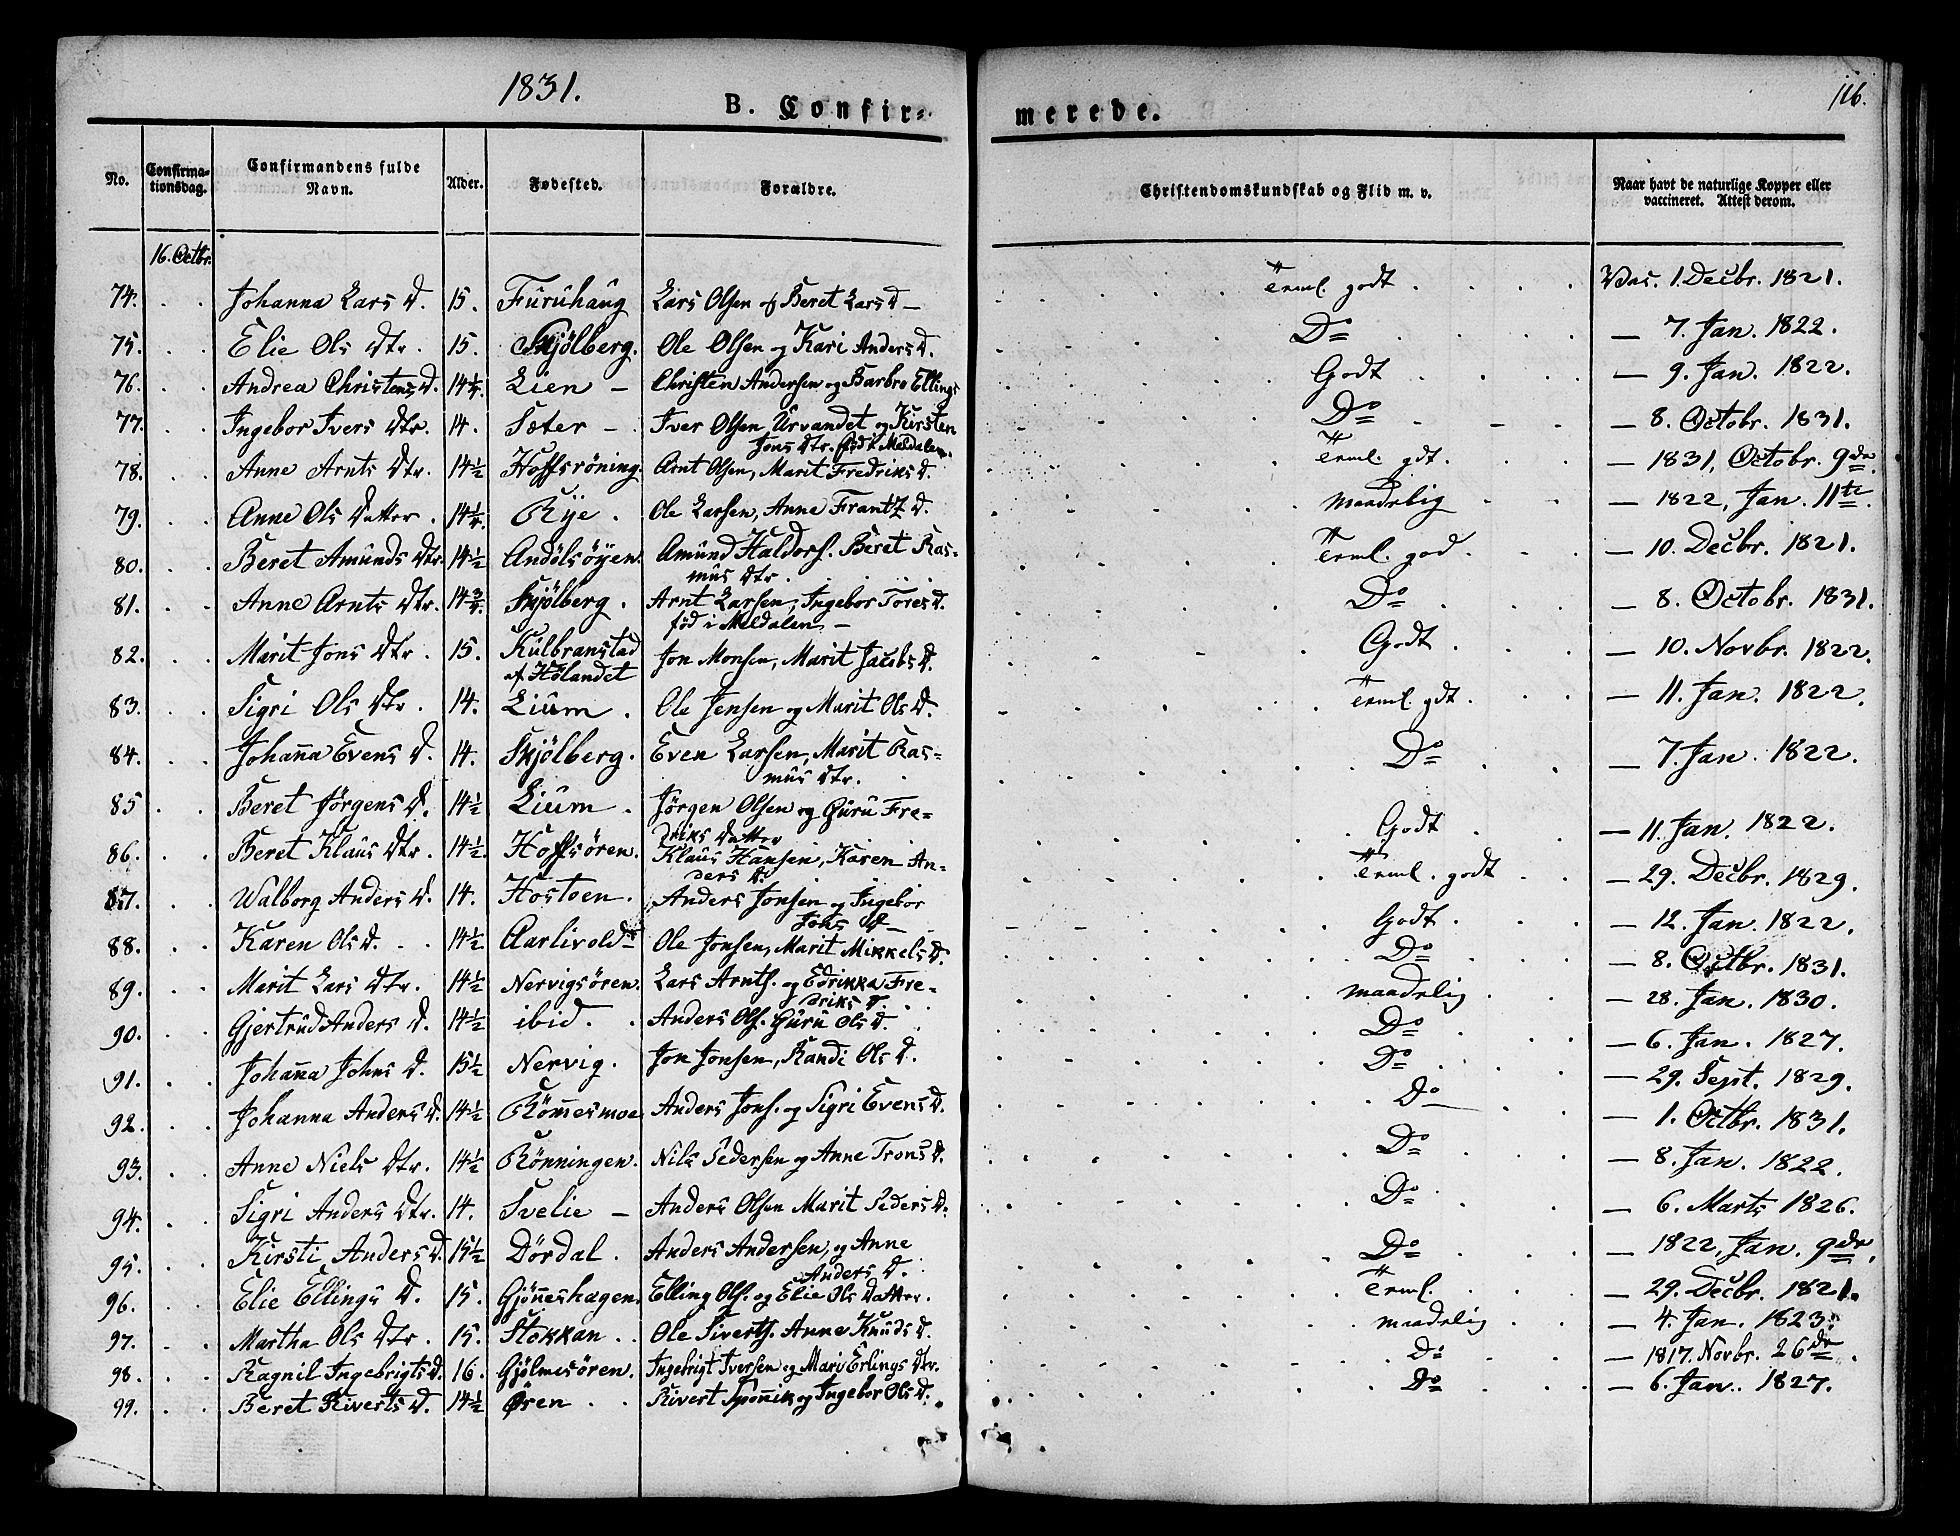 1831.
116.
B. Confir=
merede.
No.
Confirma-
tionsdag.
Confirmandens fulde
Navn.
Alder.
Fødested.
Forældre.
Christendomskundskab og Flid m. v.
Naar havt de naturlige Kopper eller
vaccineret. Attest derom.
16. Octbr.
74. Johanna Lars D. 15. Furuhaug Lars Olsen og Beret Lars D – Teml. godt Vac. 1. Decbr. 1821.
75. Elie Ols Dtr. 15. Skjølberg. Ole Olsen og Kari Anders D. Do – 7. Jan. 1822.
76. Andrea Christens D. 14¼. Lien – Christen Andersen og Barbro Ellings Godt – 9. Jan. 1822.
77. Ingebor Ivers Dtr. 14. Sæter – Iver Olsen Urvandet og Kirsten Do – 8. Octobr. 1831.
Jons Dtr. født i Meldalen.
78. Anne Arnts Dtr. 14½ Hoffsröning. Arnt Olsen, Marit Fredriks D. Teml. gdt. – 1831, Octobr. 9de
79. Anne Ols Datter. 14¼. Rye. Ole Larsen, Anne Frantz D. maadelig – 1822, Jan. 11te.
80. Beret Amunds Dtr. 14½ Andölsöyen. Amund Haldors. Beret Ras- Teml. god. – 10. Decbr. 1821.
mus Dtr.
81. Anne Arnts Dtr. 14¾. Skjölberg. Arnt Larsen, Ingebor Tores D. Do – 8. Octobr. 1831.
fød i Meldalen –
82. Marit Jons Dtr. 15. Kulbranstad Jon Monsen, Marit Jacobs D. Godt – 10. Novbr. 1822.
af Hölandet
83. Sigri Ols Dtr. 14. Lium. Ole Jensen og Marit Ols D. Teml. gdt. – 11. Jan. 1822.
84. Johanna Evens D. 14. Skjölberg. Even Larsen, Marit Ras- Do – 7. Jan. 1822.
mus Dtr.
85 Beret Jørgens D. 14½ Lium. Jørgen Olsen og Guru Fre- Godt – 11. Jan. 1822.
driks Datter
86. Beret Klaus Dtr. 14½. Hoffsören. Klaus Hansen, Karen An- Teml. godt – 29. Decbr. 1829.
ders D.
87. Walborg Anders D. 14. Hostoen. Anders Jonsen og Ingebor Godt. – 12. Jan. 1822.
Johs D –
88. Karen Ols D. 14½ Aarlivold – Ole Jonsen, Marit Mikkels D. Do – 8. Octbr. 1831.
89. Marit Lars Dtr. 14½ Nervigsören. Lars Arnts. og Edrikka Fre- maadelig – 28. Jan. 1830.
driks D.
90. Gjertrud Anders D. 14½ ibid. Anders Ols. Guru Ols D. Do – 6. Jan. 1827.
91. Johanna Johns D. 15½ Nervig. Jon Jonsen, Randi Ols D. Do – 29. Sept. 1829.
92. Johanna Anders D. 14½ Römesmoe Anders Jons. og Sigri Evens D. Do – 1. Octbr. 1831.
93. Anne Niels Dtr. 14½ Rönningen. Nils Pedersen og Anne Trons D. Do – 8. Jan. 1822.
94. Sigri Anders Dtr. 14. Svelie – Anders Olsen Marit Peders D. Do – 6. Marts 1826.
95. Kirsti Anders D. 15½ Dördal. Anders Andersen, og Anne Do – 1822, Jan. 9de.
Anders D.
96. Elie Ellings D. 15. Gjöneshagen. Elling Ols. og Elie Ols Datter. Teml. – 29. Decbr. 1821.
97. Martha Ols Dtr. 15. Stokkan. Ole Siverts. Anne Knuds D. maadelig – 4. Jan. 1823.
98. Ragnil Ingebrigts D. 16. Gjölmesören. Ingebrigt Iversen og Mari Erlings Dtr. Do – 1817. Novbr. 26de.
99. Beret Siverts D. 14½ Øren. Sivert og Ingebor Ols D. Do – 6. Jan. 1827.